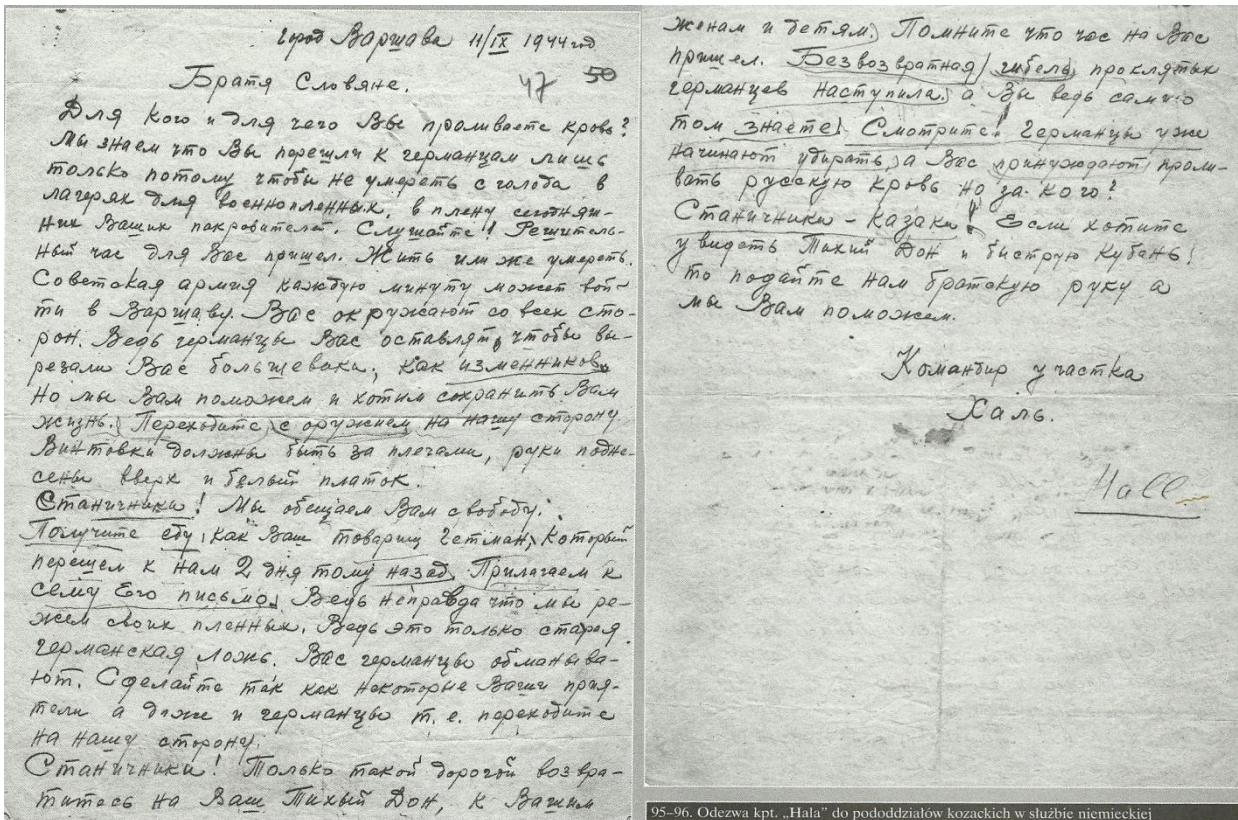 город Варшава 11/IX 1944 год
47 50
Братя Словяне.
Для кого и для чего Вы проливаете кровь?
Мы знаем что Вы перешли к германцам лишь
только потому чтобы не умереть с голода в
лагерях для военнопленных, в плену сегодняш-
них Ваших покровителей. Слушайте! Решитель-
ный час для Вас пришел. Жить или же умереть.
Советская армия каждую минуту может вой-
ти в Варшаву. Вас окружают со всех сто-
рон. Ведь германцы Вас оставлят, чтобы вы-
резали Вас большеваки, как изменников.
Но мы Вам поможем и хотим сохранить Вам
жизнь. Переходите с оружием на нашу сторону.
Винтовки должны быть за плечами, руки подне-
сены вверх и белый платок.
Станичники! Мы обещаем Вам свободу.
Получите еду, как Ваш товарищ Гетман, который
перешел к нам 2 дня тому назад. Прилагаем к
сему Его письмо. Ведь неправда что мы ре-
жем своих пленных. Ведь это только старая
германская ложь. Вас германцы обманыва-
ют. Сделайте так как некоторые Ваши прия-
тели а даже и германцы т.е. переходите
на нашу сторону.
Станичники! Только такой дорогой возвра-
титесь на Ваш Тихий Дон, к Вашим
женам и детям. Помните что час на Вас
пришел. Безвозвратная гибель проклятых
германцев наступила, а Вы ведь сами о
том знаете! Смотрите! Германцы уже
начинают удирать, а Вас принуждают проли-
вать русскую кровь но за кого?
Станичники - казаки! Если хотите
увидеть Тихий Дон и быструю Кубань,
то подайте нам братскую руку а
мы Вам поможем.
Командир участка
Халь.
Hall
95–96. Odezwa kpt. „Hala” do pododdziałów kozackich w służbie niemieckiej